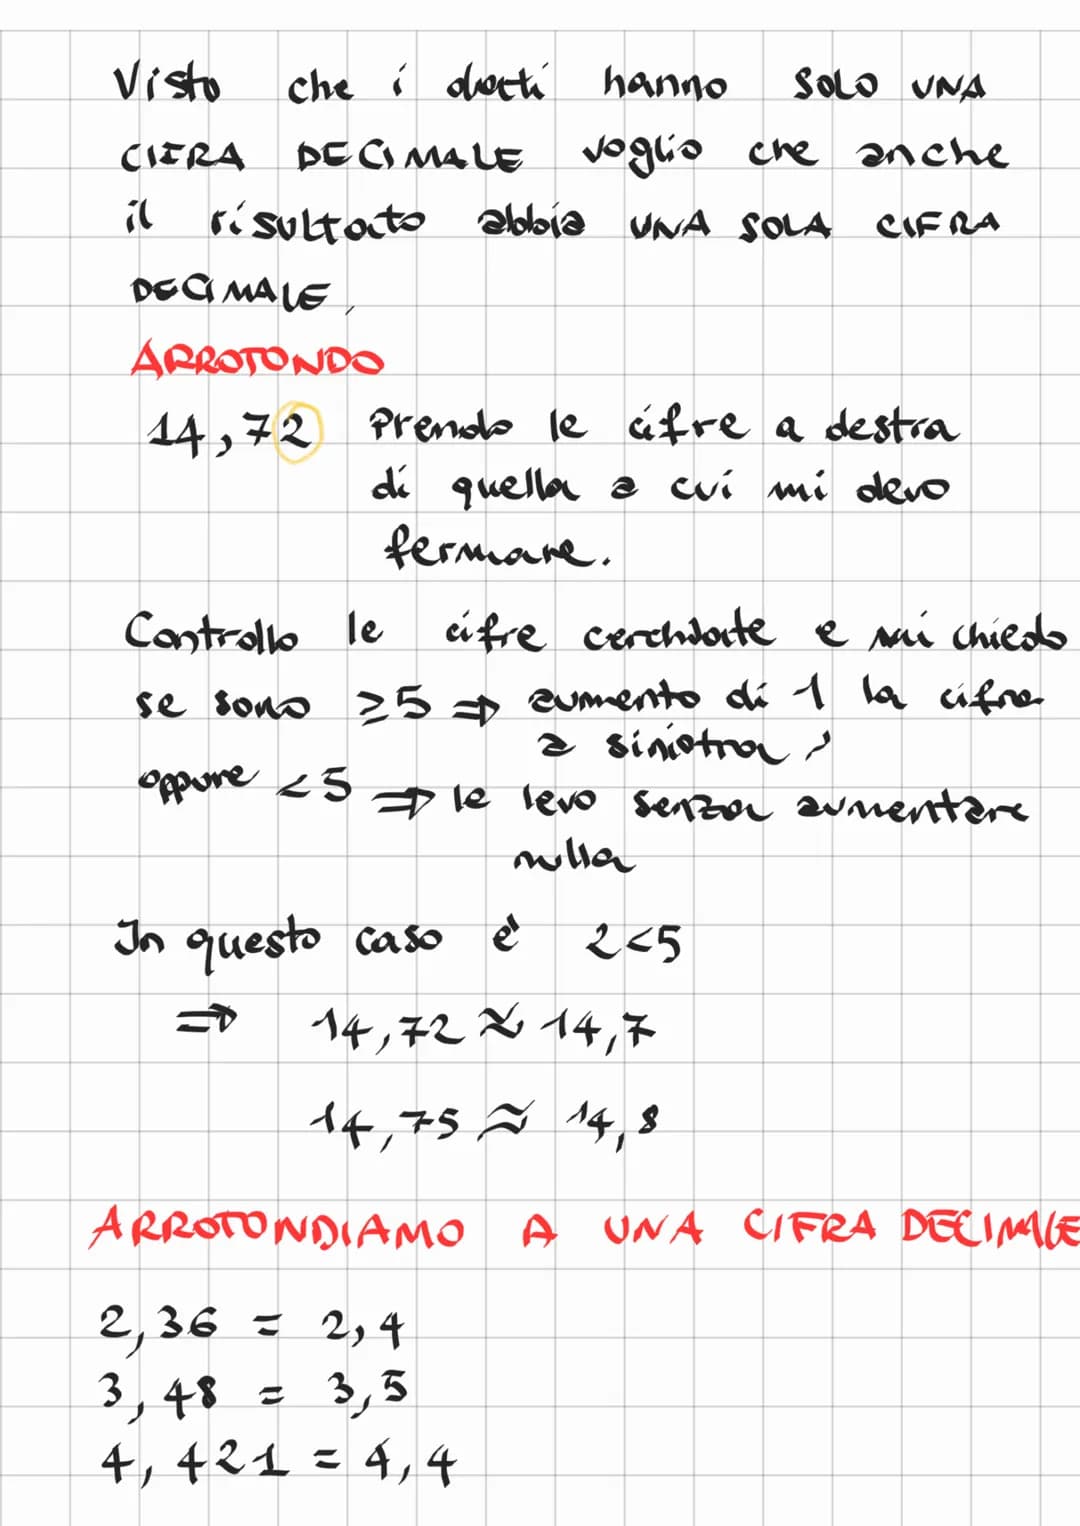 Visto che i dati hanno SOLO UNA
CIFRA DECIMALE voglio che anche
il risultato abbia UNA SOLA CIFRA
DECIMALE.
ARROTONDO
14,72 Prendo le cifre a destra
di quella a cui mi devo
fermare.
Controllo le cifre cerchiate e mi chiedo
se sono ≥5 ⇒ aumento di 1 la cifra
a sinistra,
oppure <5 ⇒ le levo senza aumentare
nulla
In questo caso è 2<5
⇒ 14,72 ≈ 14,7
14,75 ≈ 14,8
ARROTONDIAMO A UNA CIFRA DECIMALE
2,36 = 2,4
3,48 = 3,5
4,421 = 4,4